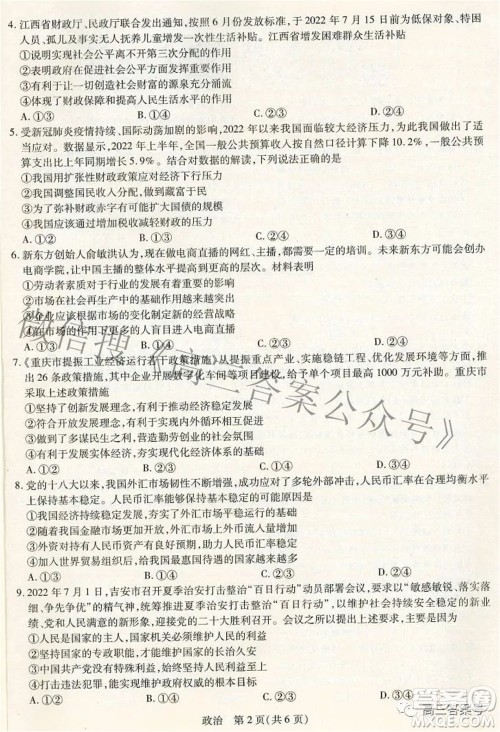 4. 江西省财政厅、民政厅联合发出通知,按照6月份发放标准,于2022年7月15日前为低保对象、特困
人员、孤儿及事实无人抚养儿童增发一次性生活补贴。江西省增发困难群众生活补贴
①说明实现社会公平离不开第三次分配的作用
②表明政府在促进共同富裕方面发挥重要作用
③有利于让一切创造社会财富的源泉充分涌流
④体现了财政保障和提高人民生活水平的作用
A. ①② B. ①③ C. ②④ D. ③④
5. 受新冠肺炎疫情持续、国际动荡加剧的影响,2022年以来我国面临较大经济压力,为此我国做出了适
当应对。数据显示,2022年上半年,全国一般公共预算收入按自然口径计算下降10.2%,一般公共预
算支出比上年同期增长5.9%。结合所学,下列说法正确的是
①我国用扩张性财政政策应对经济下行压力
②我国调整国民收入分配,做到藏富于民
③为了弥补财政赤字有可能扩大国债的规模
④我国应该通过增加税收减轻财政的压力
A. ①③ B. ①④ C. ②③ D. ②④
6. 新东方创始人俞敏洪认为,现在做电商直播的网红、主播,都需要一定的培训。未来新东方可能会创办
电商学院,让中国主播的整体水平提高到三年更好的状态。材料表明
①劳动者素质对于行业的发展有着重要的意义
②市场在社会再生产中的基础作用越来越突出
③市场主体能根据市场的变化制定新的经营战略
④网络的作用让更多的人盲目进入电商直播
A. ①② B. ①③ C. ②④ D. ③④
7. 《重庆市提振工业经济运行若干政策措施》从提振重点产业、实施稳链工程、优化发展环境等方面,推
出26条政策措施,其中企业开展数字化车间等项目建设,给予单个项目最高1000万元补助。重庆市
采取上述政策措施
①坚持了创新发展理念,有利于推动经济稳定发展
②符合开放发展理念,有利于实现内外循环相互促进
③做到了多谋民生之利,营造勤劳创业的社会氛围
④有利于经济高质量发展,夯实现代化经济体系的基础
A. ①② B. ①④ C. ②③ D. ③④
8. 党的十八大以来,我国外汇市场韧性不断增强,成功应对了多轮外部冲击,人民币汇率在合理均衡水平
上保持基本稳定。人民币汇率能够保持基本稳定的可能原因是
①我国经济持续稳定发展,为外汇市场平稳运行奠定了基础
②随着我国金融市场更加开放,外汇市场发展更加成熟
③外资对于持有人民币资产的热情高涨,助推了人民币升值
④加入世界贸易组织后,给我国最惠国待遇的国家越来越多
A. ①② B. ①③ C. ②④ D. ③④
9. 2022年7月1日,吉安市召开夏季治安打击整治“百日行动”动员部署会议,要求以“敏感敏锐、落实落
细、争先争优”的精气神,统筹推进夏季治安打击整治“百日行动”,以维护社会持续安全稳定的新成
效,迎接党的二十大胜利召开。会议之所以提出上述要求是因为
①人民是国家的主人,国家维护人民的根本利益
②坚持国家的专政职能,才能不断扩大人民民主
③中国共产党没有自己的特殊利益,坚持人民至上
④实施法治是维护政府权威的根本目标
A. ①② B. ①③ C. ②④ D. ③④
政治 第2页(共6页)
微信搜《高三答案公众号》
高三答案号